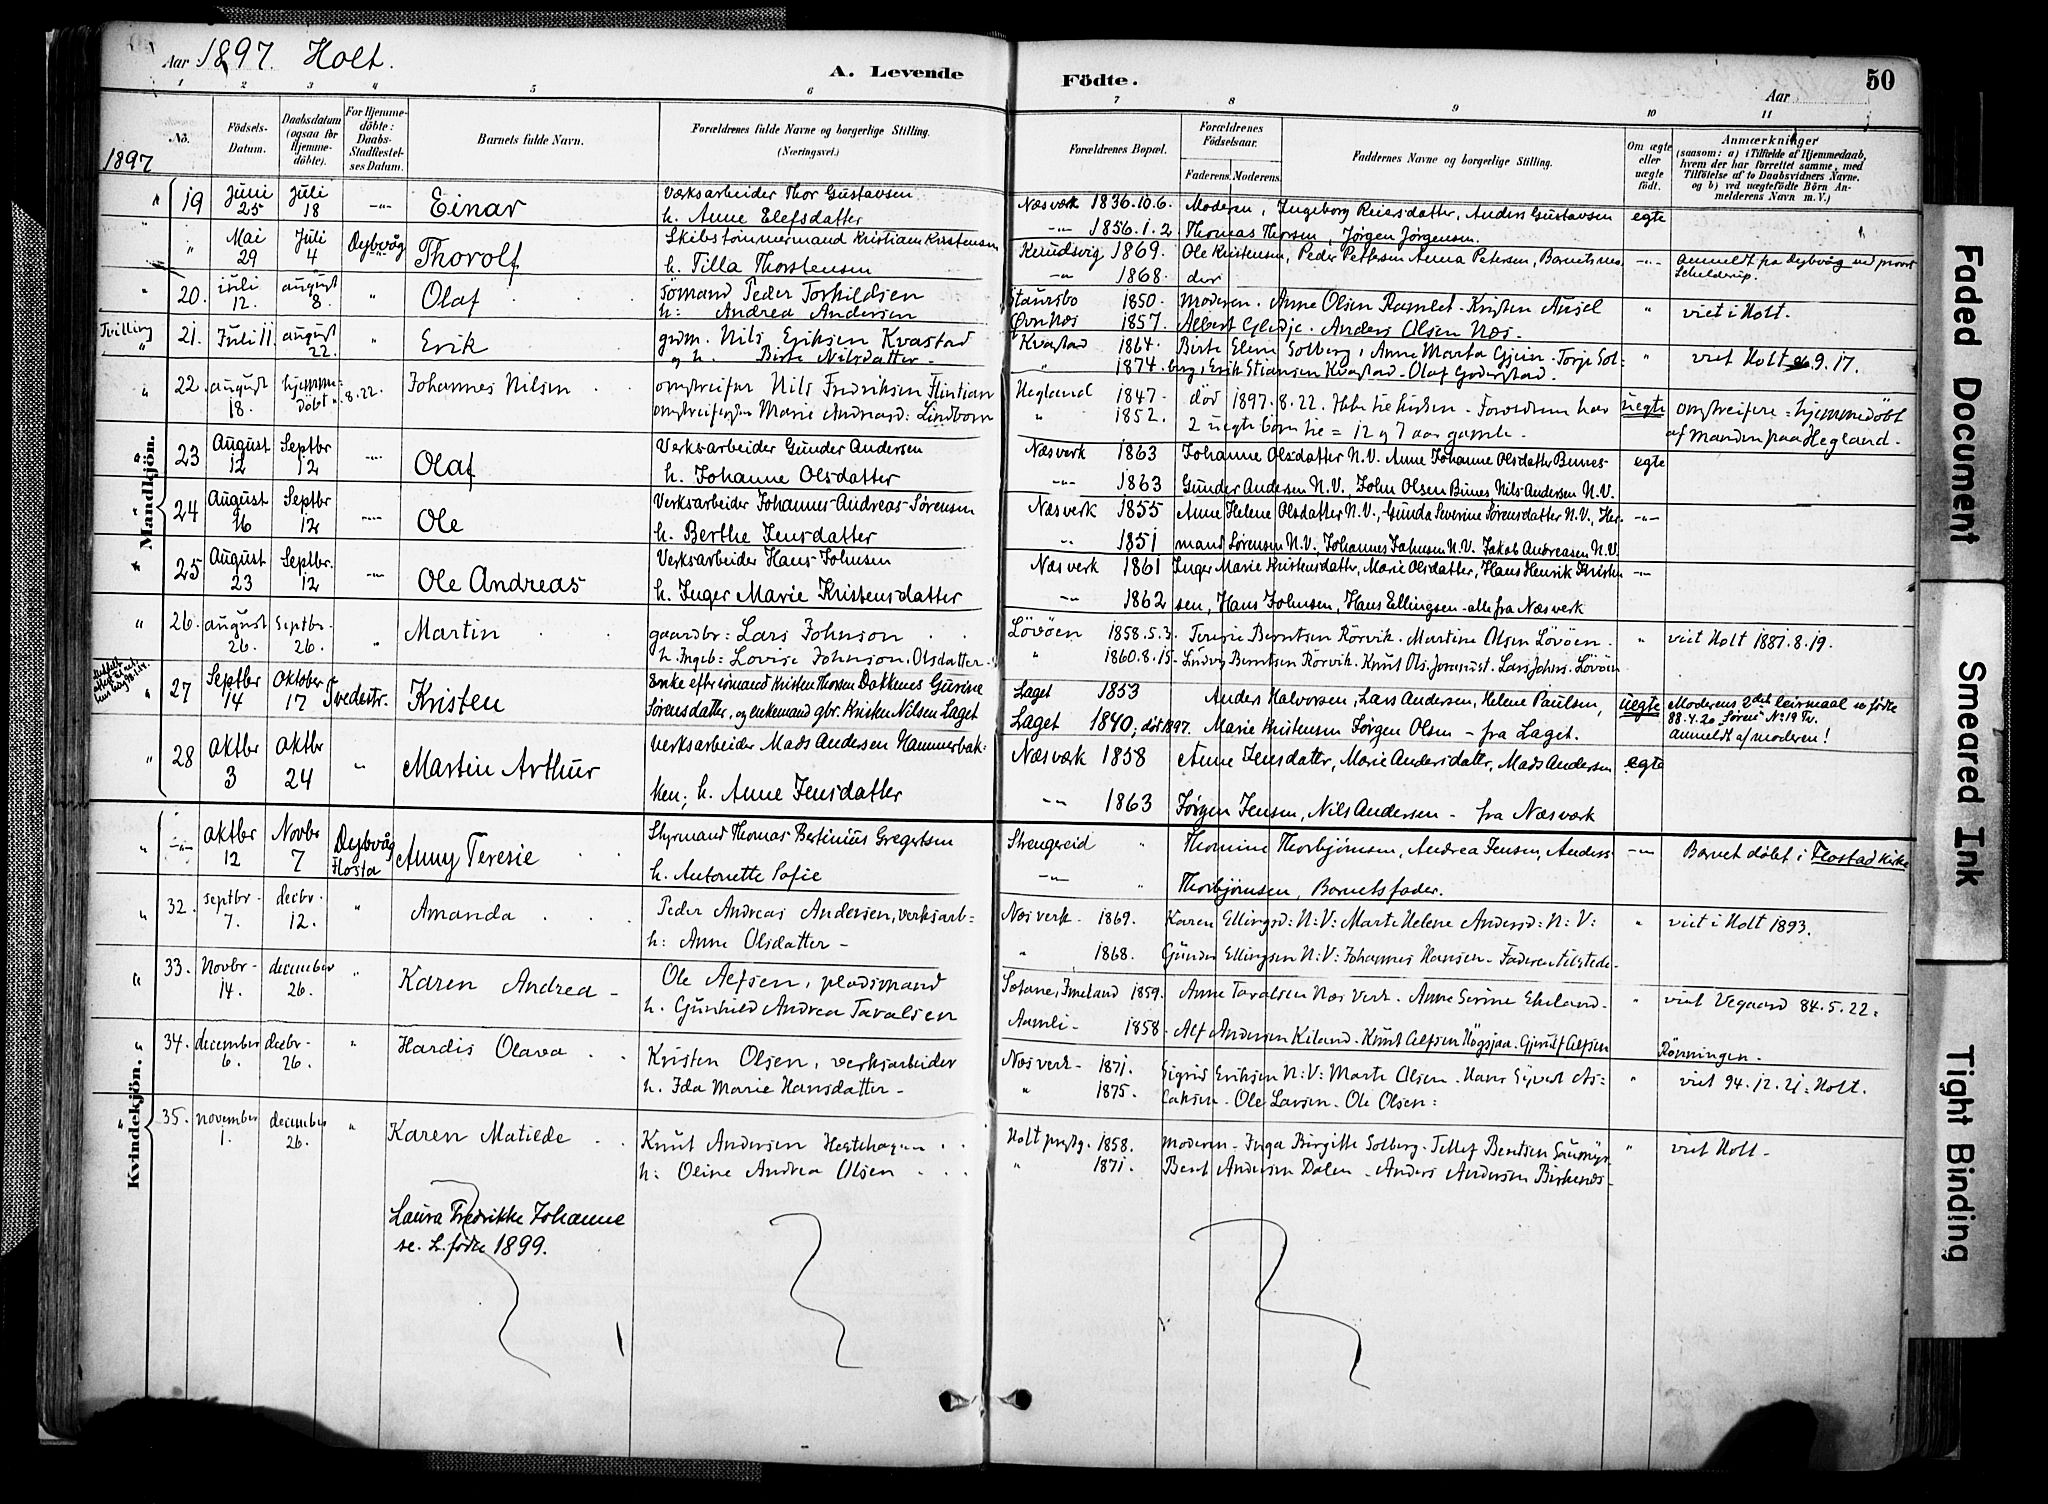 Aar 1897. Holt.
A. Levende
Födte.
50
Aar
1 2 3 4 5 6 7 8 9 10 11
No.
Födsels-Datum.
Daabsdatum (ogsaa for Hjemmedöbte).
For Hjemmedöbte: Daabs-Stadfæstelses Datum.
Barnets fulde Navn.
Forældrenes fulde Navne og borgerlige Stilling.
(Næringsvei.)
Forældrenes Bopæl.
Forældrenes Födselsaar.
Faderens. Moderens.
Faddernes Navne og borgerlige Stilling.
Om ægte eller uægte födt.
Anmærkninger
(saasom: a) i Tilfælde af Hjemmedaab, hvem der har forrettet samme, med Tilföielse af to Daabsvidners Navne, og b) ved uægtefödte Börn Anmelderens Navn m. V.)
1897
" 19 Juni 25 Juli 18 -"- Einar Værksarbeider Thor Gustavsen Næsværk 1836.10.6. Moderen, Ingeborg Reiersdatter, Anders Gustavsen egte
h. Anne Elefsdatter -"- 1856.1.2. Thomas Thorsen, Jørgen Jørgensen. "
" " Mai 29 Juli 4 Dybvåg Thorolf Skibstømmermand Kristian Kristensen Knudsvig 1869. Ole Kristensen, Peder Petersen Anna Petersen, Barnets mo- -"- anmeldt fra Dybvåg ved provst
h. Tilla Thorstensen -"- 1868. der Scheldrup.
" 20. juli 12. august 8. " Olaf Sømand Peder Torkildsen 1850. Moderen. Anne Olsen Ramlet. Kristen " viet i Holt.
h: Andrea Andersen 1857. Albert Anders Olsen Næs.
Tvilling " 21. Juli 11. august 22. Erik grdm. Nils Eriksen Kvastad Kvastad 1864. Birte Eline Solberg, Anne Marta Gjein. Torje Sol: " viet Holt 9.17.
og h. Birte Nilsdatter. " 1874. berg, Erik Kvastad. Olaf Goderstad.
" 22. august 18. hjemmedöbt 8.22. Johannes Nilsen omstreifer Nils Fredriksen Flintian Hegland 1847. död 1897.8.22. uegte omstreifere = hjemmedöbt
Marie Lindborn " 1852. 2 uegte börn = 12 og 7 aar gamle. af manden paa Hegland.
Mandkjön.
" 23 August 12 Septbr 12 -"- Olaf Verksarbeider Gunder Andersen Næsverk 1863 Johanne Olsdatter N.V. Anne Johanne Olsdatter Bunes- egte
h. Johanne Olsdatter -"- 1863 Gunder Andersen N.V., John Olsen Bunes Nils Andersen N.V.
" 24 August 16 Septbr 12 -"- Ole Verksarbeider Johannes Andreas Sørensen Næsverk 1855 Anne Helene Olsdatter N.V., Gunda Severine Sørensdatter N.V., Her- -"-
h. Berthe Jensdatter " 1851 mand Sørensen N.V., Johannes Johnsen N.V. Jakob Andreasen N.V.
" 25 August 23 Septbr. 12 -"- Ole Andreas Verksarbeider Hans Johnsen Næsverk 1861 Inger Marie Kristensdatter, Marie Olsdatter, Hans Henrik Kristen -"-
h. Inger Marie Kristensdatter -"- 1862 sen, Hans Johnsen, Hans Ellingsen - alle fra Næsverk
" 26. august 26. septbr. 26. " Martin gaardbr: Lars Johnson Lövöen 1858.5.3. Teresie Berntsen Rörvik. Martine Olsen Lövöen. " viet Holt 1881.8.19.
h. Ingeb: Lovise Johnson, Olsdatter. " 1860.8.15. Ludvig Berntsen Rörvik. Knut Ols. Lars Johns. Lövöen
" 27 Septbr 14 Oktober 17 Tvedestr. Kristen Enke efter sømand Kristen Thorsen Dakkenes Gurine Laget 1853 Anders Halvorsen, Lars Andersen, Helene Paulsen, uegte Moderens 2det leiermaal se fødte
Sørensdatter, og enkemand gbr. Kristen Nilsen Laget Laget 1840, død 1897. Marie Kristensen Jørgen Olsen - fra Laget. 88.4.20 Søren No 19 Tv.
Anmeldt af moderen!
" 28 Oktbr 3 Oktbr 24 " Martin Arthur Verksarbeider Mads Andersen Hammerbak- Næsværk 1858 Anne Jensdatter, Marie Andersdatter, Mads Andersen egte
ken; h. Anne Jensdatter -"- 1863 Jørgen Jensen, Nils Andersen - fra Næsværk
" -"- Oktbr 12 Novbr 7 Dybvåg Flosta Anny Teresie Styrmand Thomas Bertinius Gregertsen Strengereid " Thomine Thorbjørnsen, Andrea Jensen, Anders -"- Barnet døbt i Flostad kirke
h. Antonette Sofie -"- " Thorbjørnsen, Barnets fader.
" 32. septbr 7. decbr 12. " Amanda Peder Andreas Andersen, verksarb= Næsverk - 1869. Karen Ellingsd: N:V: Marte Helene Andersd: N:V: " viet i Holt 1893.
h: Anne Olsdatter - " 1868. Gunder Ellingsen N:V: Johannes Hansen. Faderen tilstede.
" 33. Novbr 14. december 26. " Karen Andrea - Ole Alfsen, pladsmand 1859. Anne Tavalsen Næs Verk. Anne Serine Ekeland. " viet Vegaard 84.5.22:
h. Gunhild Andrea Tavalsen Aamli - 1858. Alf Andersen Kiland. Knut Alfsen Högsjaa. Gjerulf Alfsen Rönningen.
Kvindekjön.
" 34. december 6. decbr 26. " Hardis Olava Kristen Olsen, verksarbeider Næsverk - 1871. Sigrid Eriksen N:V: Marte Olsen. Hans Sigvert As= " viet 94.12.21: Holt.
h. Ida Marie Hansdatter - " 1875. laksen. Ole Larsen. Ole Olsen:
" 35. november 1. december 26. " Karen Matilde Knut Andersen Hegtehagen Holt 1858. Moderen. Inga Birgitte Solberg. Tellef Berntsen " viet Holt -
h: Oline Andrea Olsen " 1871. Bent Andersen Dalen. Anders Andersen Birkenes.
Laura Fredrikke Johanne
se. L. fødte 1899.
Faded Document
Smeared Ink
Tight Binding